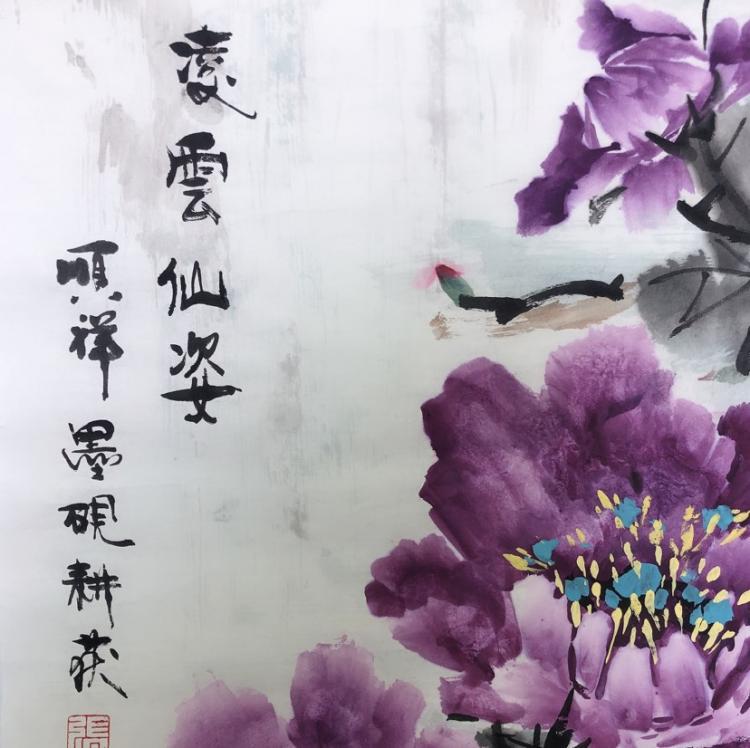 凌雲仙姿
順祥墨硯耕获
張